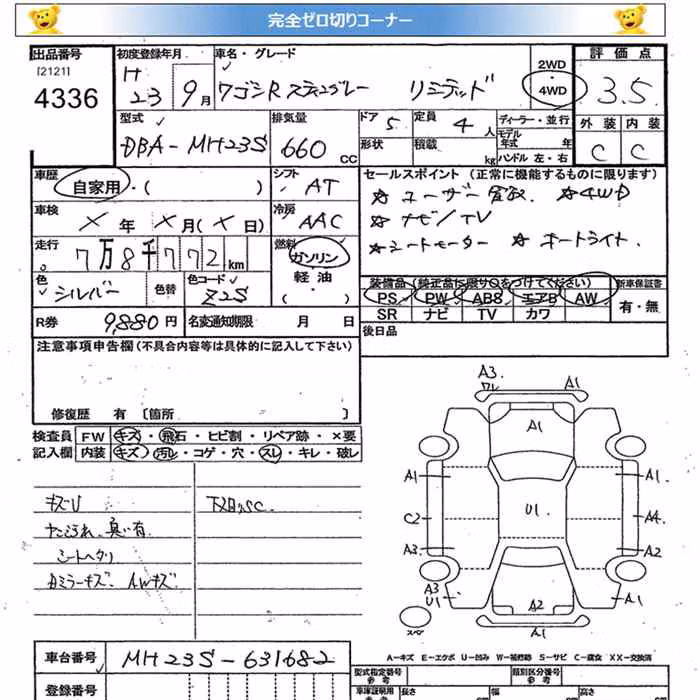 完全ゼロ切りコーナー
出品番号
[2121]
4336
初度登録年月
H
23年 9月
車名・グレード
ワゴンR スティングレー リミテッド
2WD
・
4WD
評価点
3.5
型式
DBA-MH23S
排気量
660 CC
ドア 5
形状
定員 4 人
積載 kg
ディーラー・並行
モデル
年式 年
ハンドル 左・右
外装 内装
C C
車歴
自家用・( )
シフト
AT
セールスポイント (正常に機能するものに限ります)
☆ ユーザー買取 ☆ 4WD
☆ ナビ/TV
☆シートヒーター ☆ オートライト.
車検
X 年 X 月(X 日)
冷房
AAC
走行
7万8千772 km
燃料
ガソリン
軽油
・
( )
色
シルバー
色替
色コード
Z2S
装備品 (純正品に限り〇をつけてください)
PS PW ABS エアB AW
SR ナビ TV カワ
新車保証書
有・無
R券 9,880円
名変通知期限 月 日
後日品
注意事項申告欄(不具合内容等は具体的に記入して下さい)
修復歴 有 [箇所
検査員
記入欄
FW キズ・飛石・ヒビ割・リペア跡・×要
内装 キズ・汚レ・コゲ・穴・スレ・キレ・破レ
キズU
下廻りSC.
シートヘタリ
ミラーキズ. AWキズ
A3.
ワレ
A1
A1
A1
A1
U1
C2
A4
A3
A2
A3
U1
A2
A1
A1
スペア
A-キズ E-エクボ U-凹み W-補修跡 S-サビ C-腐食 XX-交換済
車台番号 MH23S-631682
登録番号
型式指定番号
参考
類別区分番号
参考
車庫証明用
参考
長さ
幅
高さ